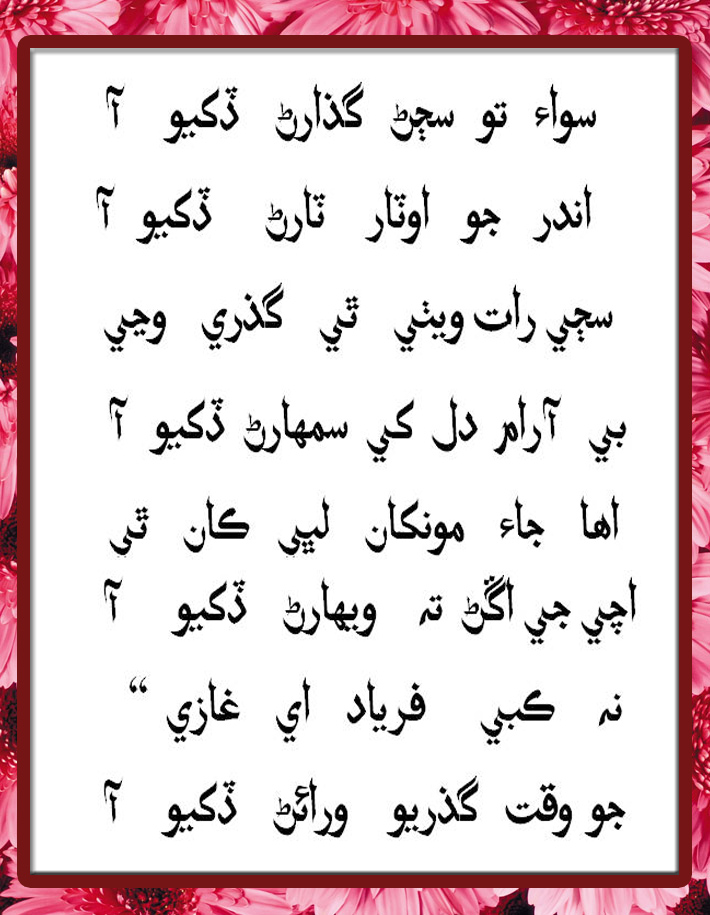 سواءِ تو سڄڻ گذارڻ ڏکيو آ
اندر جو اوٽار ٽارڻ ڏکيو آ
سڄي رات ويٺي ٿي گذري وڃي
بي آرام دل کي سمهارڻ ڏکيو آ
اها جاءِ مونکان لڀي ڪان ٿي
اچي جي اڱڻ تہ ويهارڻ ڏکيو آ
نہ ڪبي فرياد اي غازي “
جو وقت گذريو ورائڻ ڏکيو آ